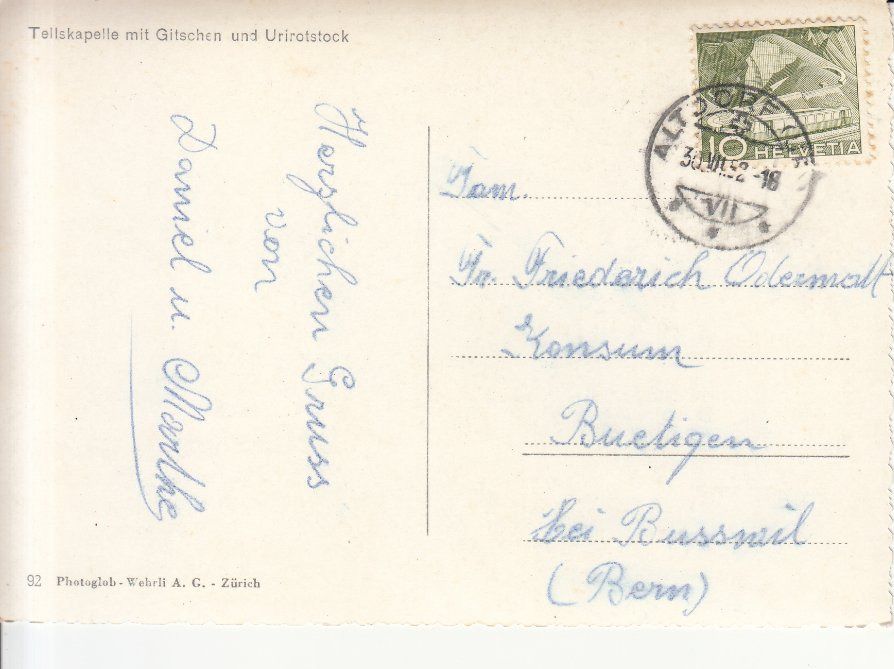 Tellskapelle mit Gitschen und Urirotstock
Herzlichen Gruss
von
Daniel u. Marthe
92 Photoglob - Wehrli A. G. - Zürich
10 HELVETIA
ALTDORF
30.VII.52-18
VII
Fam.
Fr. Friederich Odermatt
Konsum
Buetigen
bei Busswil
(Bern)